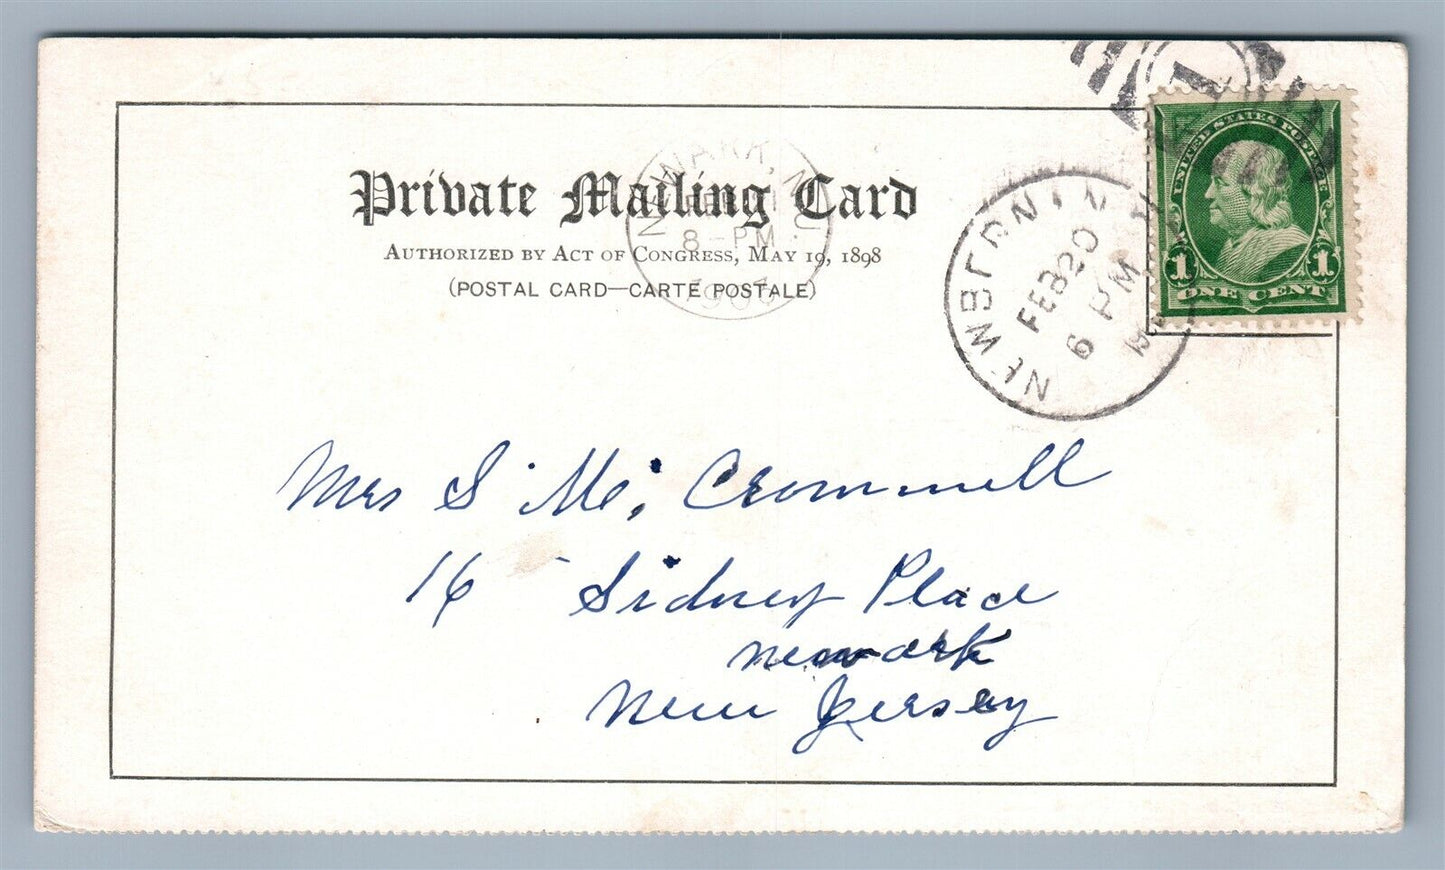 Private Mailing Card
AUTHORIZED BY ACT OF CONGRESS, MAY 19, 1898
(POSTAL CARD—CARTE POSTALE)
NEWARK, N.J.
8-PM
NEWBERN
FEB 20
6 PM
UNITED STATES POSTAGE
1 1
ONE CENT
Mrs S. M. Cromwell
16 Sidney Place
Newark
New Jersey